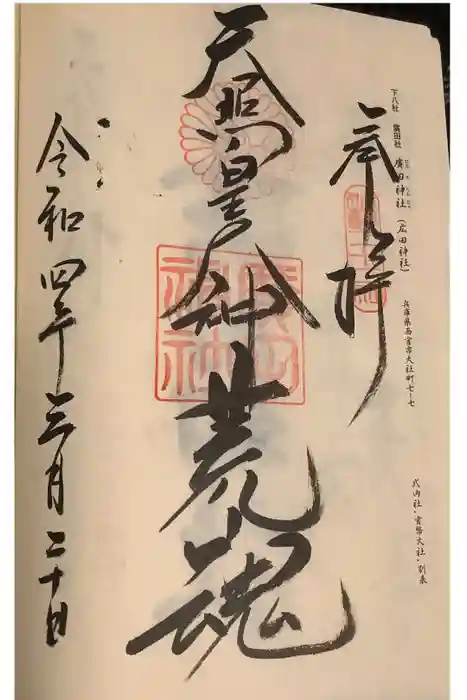 下八社 廣田社 廣田神社 (広田神社) 兵庫県西宮市大社町七−七
式内社・官幣大社・別表
奉拝
天照皇神荒魂
廣田神社
令和四年三月二十日